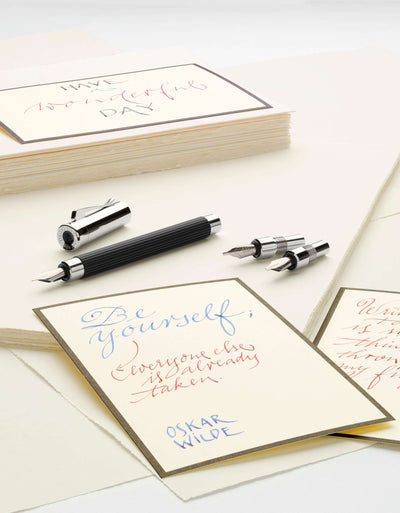 HAVE
a
wonderful
DAY
Be
yourself;
everyone else
is already
taken
OSKAR
WILDE
is
my